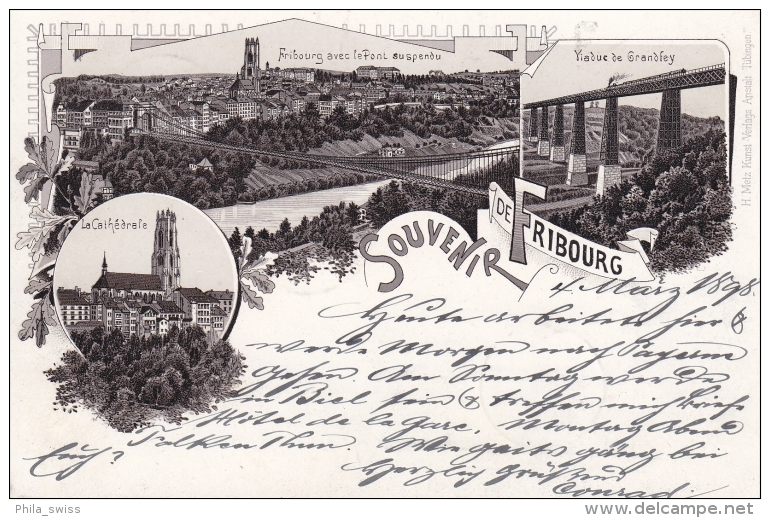 Fribourg avec le Pont suspendu
Viaduc de Grandfey
La Cathédrale
SOUVENIR
DE FRIBOURG
H. Metz Kunst Verlags Anstalt Tübingen
4. März 1898.
Heute arbeiten hier &
werde Morgen nach Payerne
gehen. Am Sonntag werde
in Biel sein & treffen mich Briefe
Hôtel de la Gare. Montag Abend
Falken Thun. Wie geits gäng bei
Euch?
Herzlich grüßend
Conrad.
Phila_swiss
delcampe.net